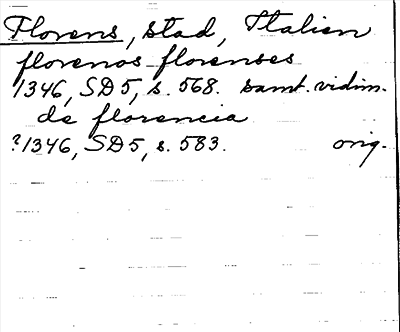 Florens, stad, Italien
florenos florenses
1346, SD5, s. 568. samt. vidim.
de florencia
?1346, SD5, s. 583. orig.